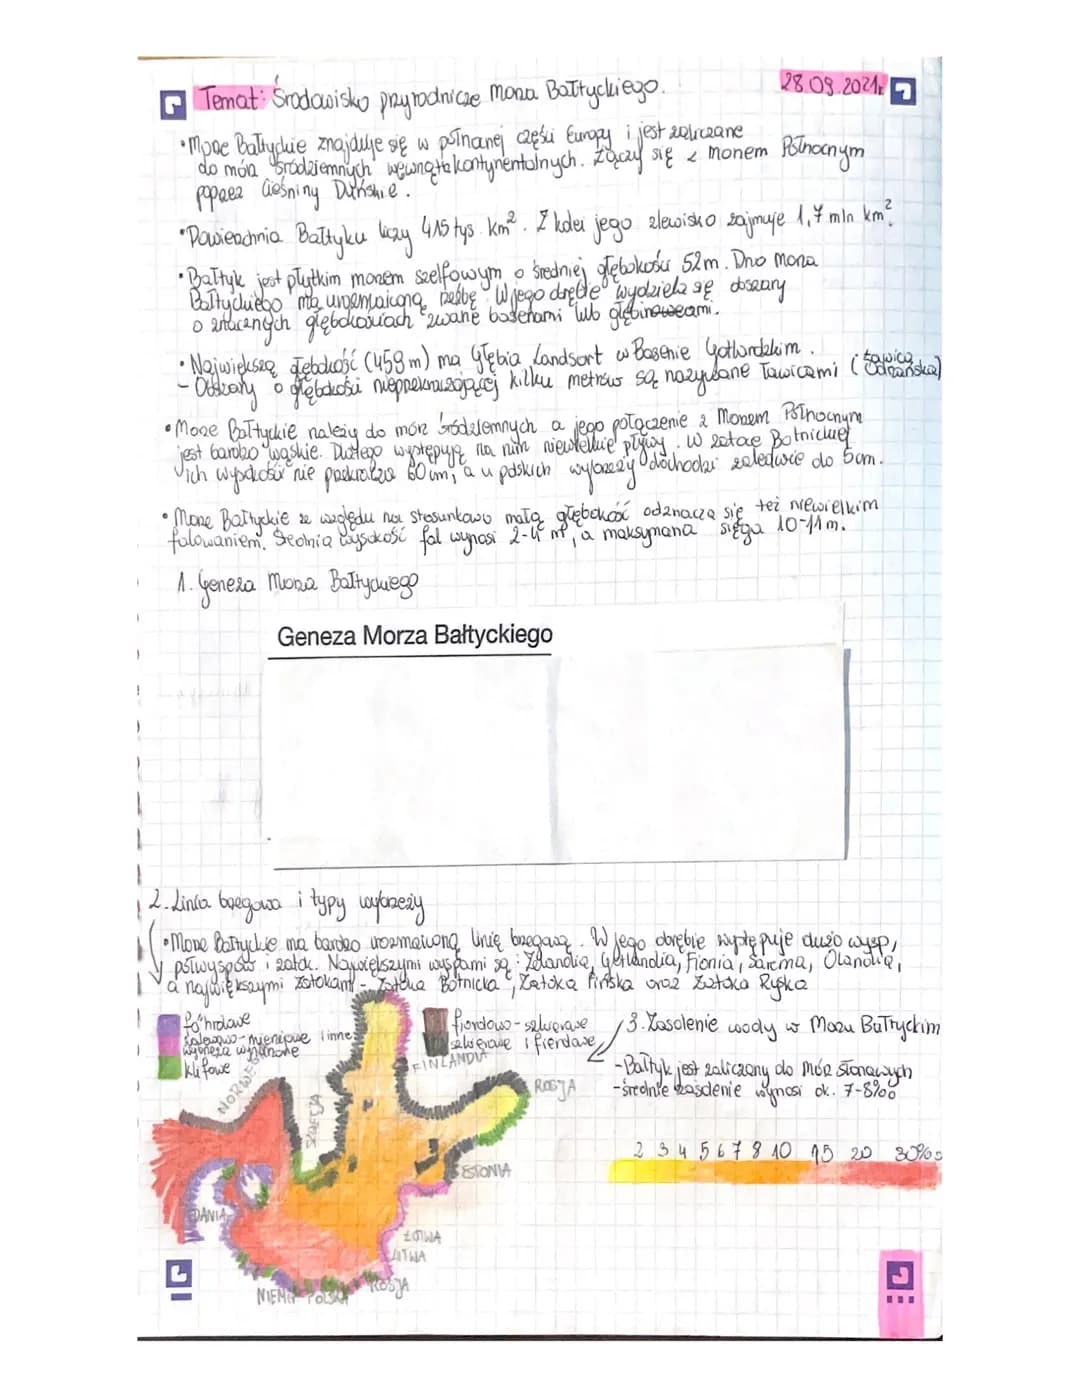 Temat: Środowisko przyrodnicze Morza Bałtyckiego.
28.09.2021r
• Morze Bałtyckie znajduje się w północnej części Europy i jest zaliczane
do mórz śródziemnych wewnątrzkontynentalnych. Łączy się z Morzem Północnym
poprzez Cieśniny Duńskie.
• Powierzchnia Bałtyku liczy 415 tys. km². Z kolei jego zlewisko zajmuje 1,7 mln km².
• Bałtyk jest płytkim morzem szelfowym o średniej głębokości 52m. Dno morza
Bałtyckiego ma urozmaiconą rzeźbę. W jego obrębie wydziela się obszary
o znacznych głębokościach zwane basenami lub głębinowemi.
• Największą głębokość (459m) ma Głębia Landsort w Basenie Gotlandzkim.
- Obszary o głębokości nieprzekraczającej kilku metrów są nazywane Ławicami (Ławica Odrzańska)
• Morze Bałtyckie należy do mórz śródziemnych a jego połączenie z Morzem Północnym
jest bardzo wąskie. Dlatego występują na nim niewielkie pływy. W zatoce Botnickiej
ich wysokość nie przekracza 60 cm, a u polskich wybrzeży dochodzi zaledwie do 5cm.
• Morze Bałtyckie ze względu na stosunkowo małą głębokość odznacza się też niewielkim
falowaniem. Średnia wysokość fal wynosi 2-4 m, a maksymana sięga 10-11m.
1. Geneza Morza Bałtyckiego
Geneza Morza Bałtyckiego
2. Linia brzegowa i typy wybrzeży
• Morze Bałtyckie ma bardzo urozmaiconą linię brzegową. W jego obrębie występuje dużo wysp,
półwyspów i zatok. Największymi wyspami są: Zelandia, Gotlandia, Fionia, Sarema, Olandia,
a największymi zatokami - Zatoka Botnicka, Zatoka Fińska oraz Zatoka Ryska
föhrdowe
zalewowo-mierzejowe i inne
wybrzeża wyrównane
klifowe
fiordowo-szkierowe
szkierowe i fierdowe
3. Zasolenie wody w Morzu Bałtyckim
- Bałtyk jest zaliczany do mórz słonawych
- średnie zasolenie wynosi ok. 7-8‰
2 3 4 5 6 7 8 10 15 20 30‰
NORWEGIA
SZWECJA
FINLANDIA
ROSJA
ESTONIA
ŁOTWA
LITWA
ROSJA
POLSKA
NIEMCY
DANIA